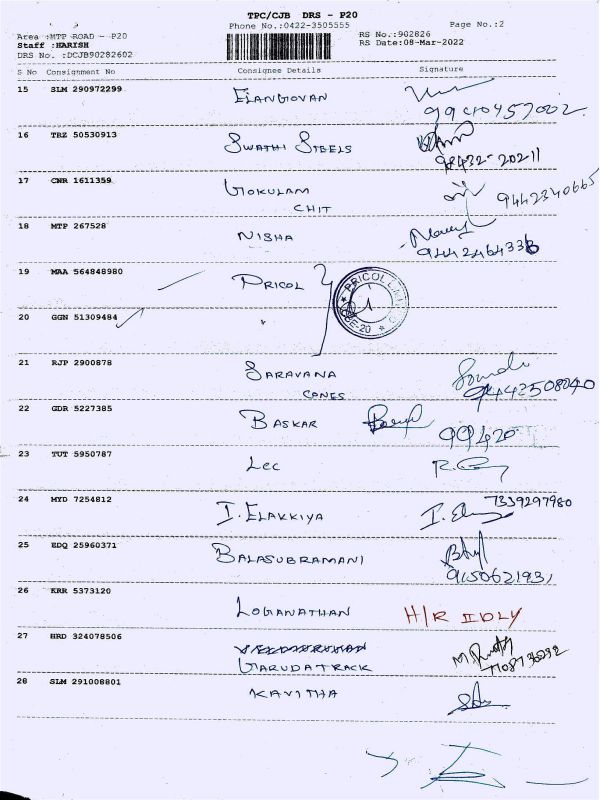 TPC/CJB DRS - P20
Phone No.:0422-3505555
Page No.:2
Area :MTP ROAD - P20
Staff :HARISH
DRS No. :DCJB90282602
RS No.:902826
RS Date:08-Mar-2022
S No Consignment No Consignee Details Signature
15 SLM 290972299 ELANGOVAN
9940457002
16 TRZ 50530913 SWATHI STEELS
98432-20211
17 CNR 1611359 GOKULAM
CHIT
9442340665
18 MTP 267528 NISHA
9442464336
19 MAA 564848980 PRICOL
20 GGN 51309484
21 RJP 2900878 SARAVANA
CONES
9442508040
22 GDR 5227385 BASKAR
99420
23 TUT 5950787 LCC
24 MYD 7254812 I. ELAKKIYA
7339297980
25 EDQ 25960371 BALASUBRAMANI
9150621931
26 KRR 5373120 LOGANATHAN H/R IDLY
27 HRD 324078506
GARUDATRACK
28 SLM 291008801 KAVITHA